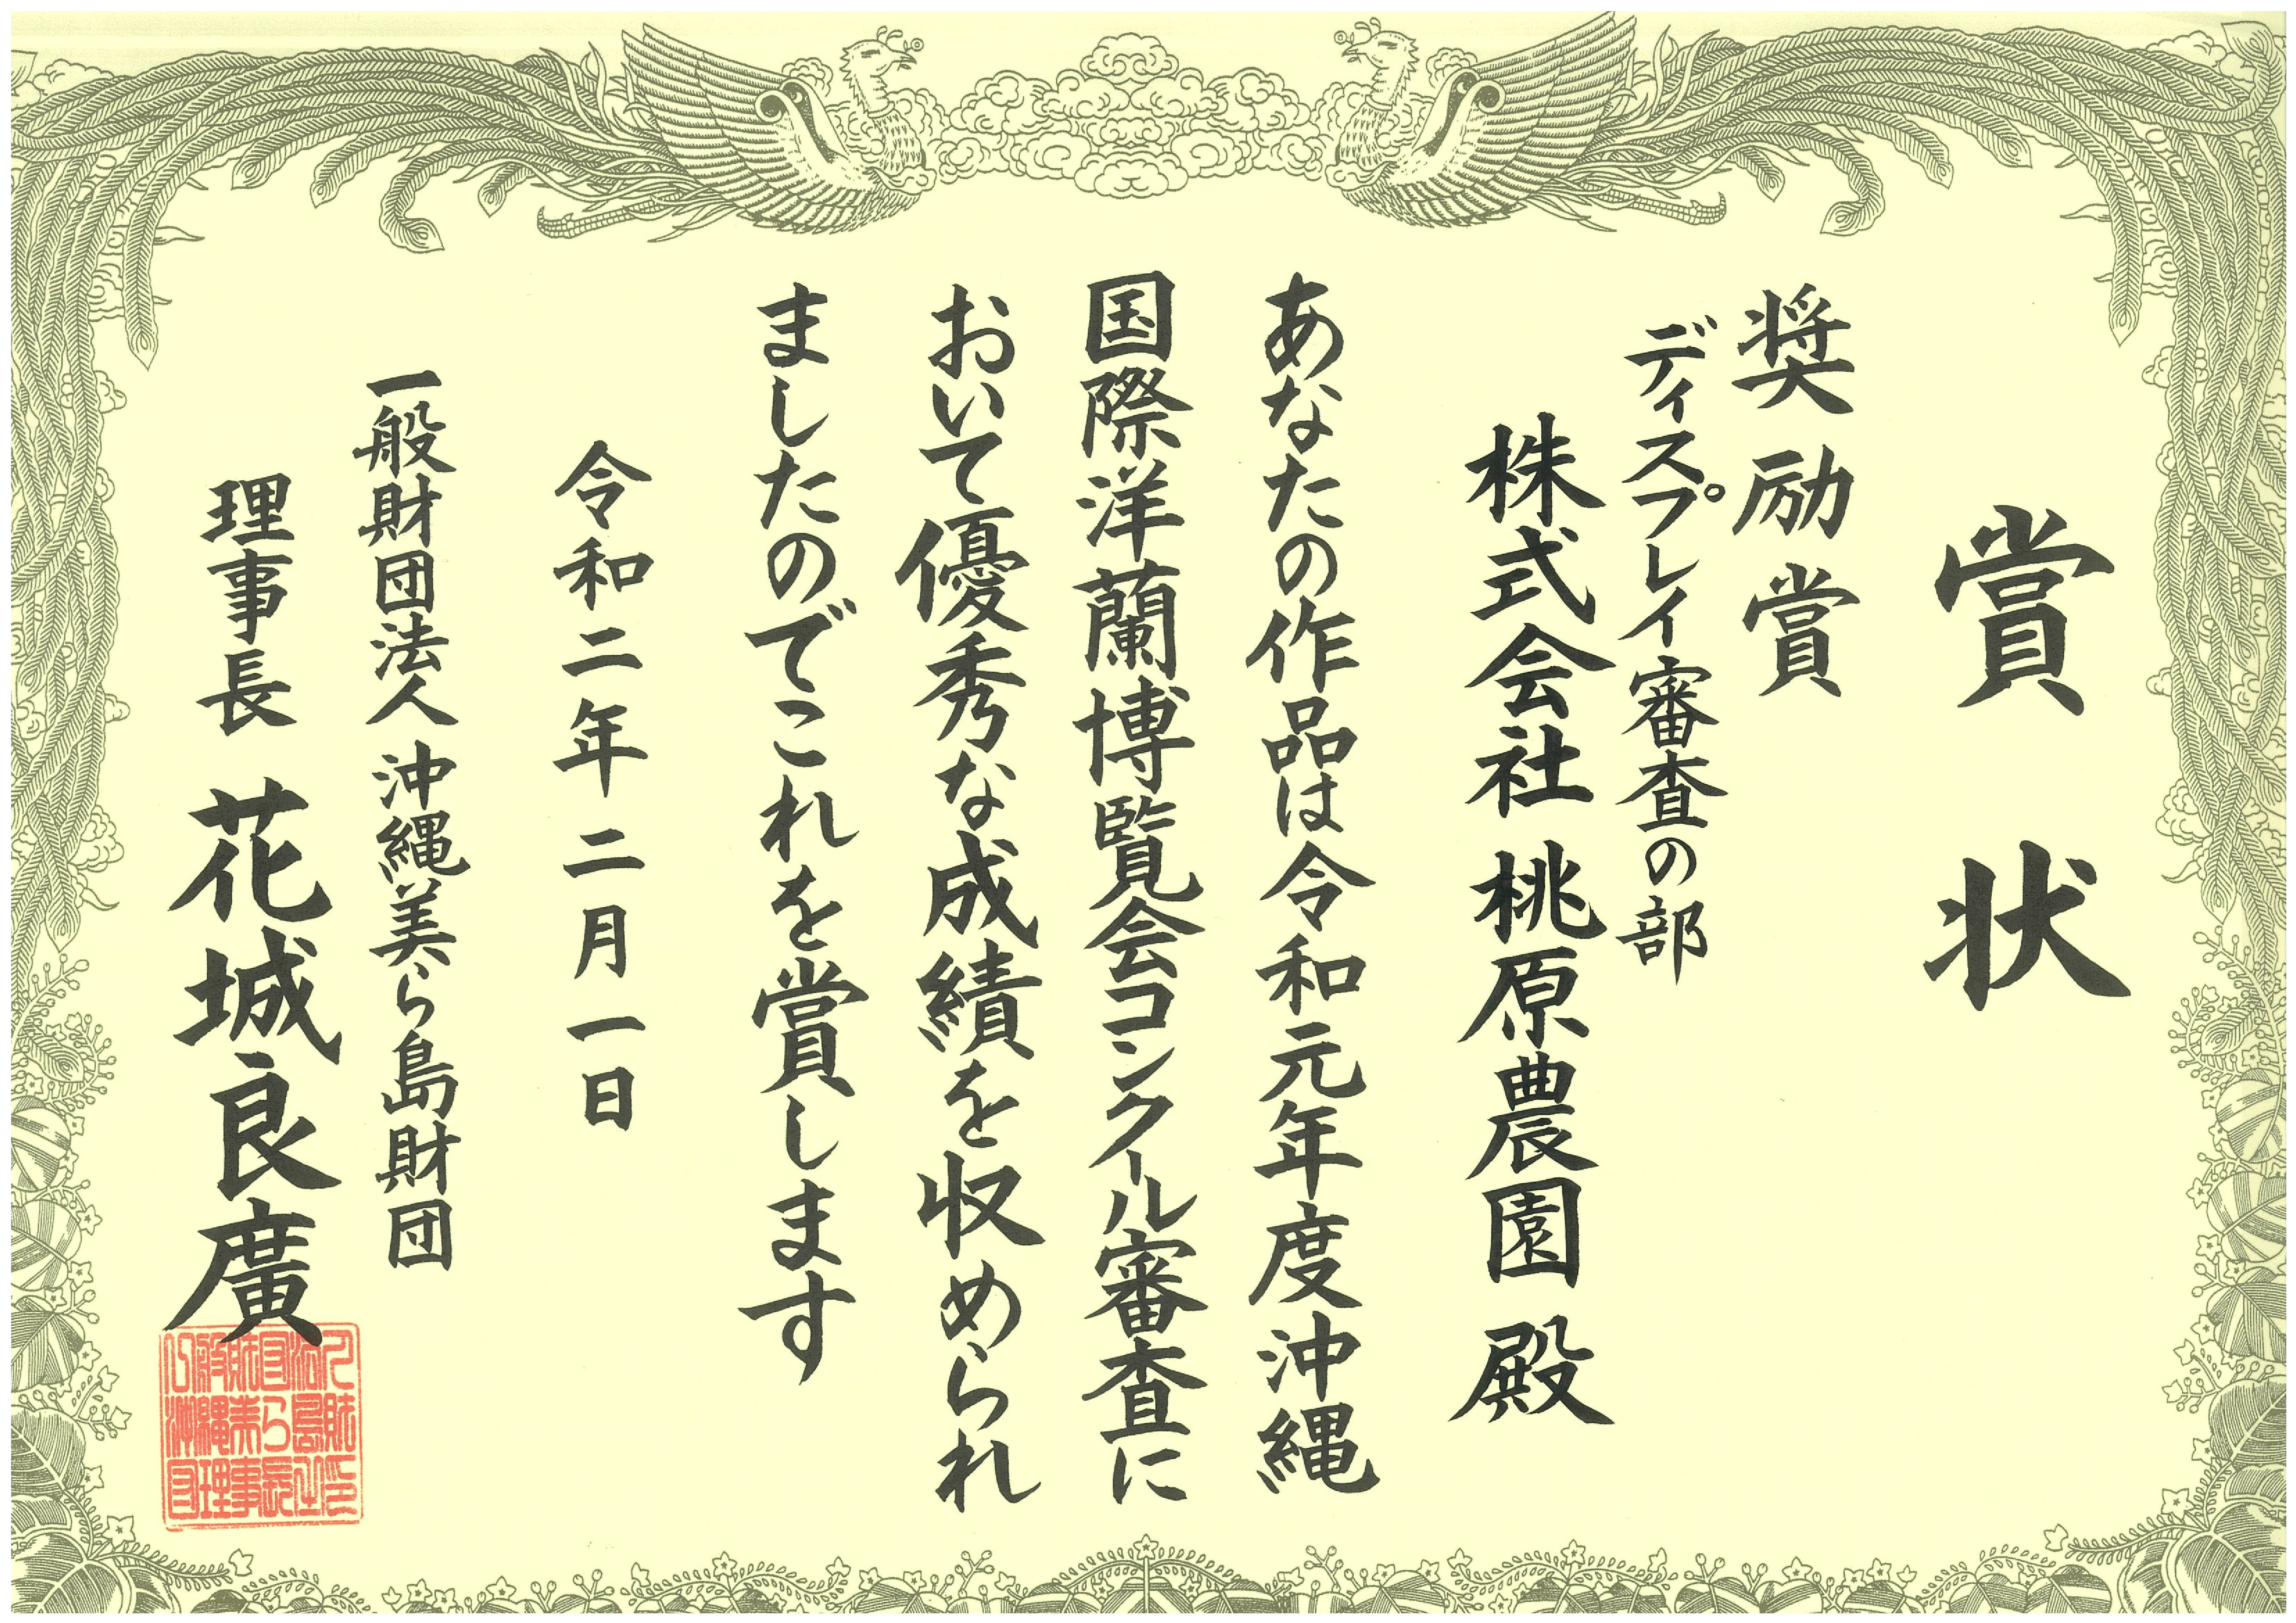 賞状
奨励賞
ディスプレイ審査の部
株式会社 桃原農園 殿
あなたの作品は令和元年度沖縄
国際洋蘭博覧会コンクール審査に
おいて優秀な成績を収められ
ましたのでこれを賞します
令和二年二月一日
一般財団法人 沖縄美ら島財団
理事長 花城良廣